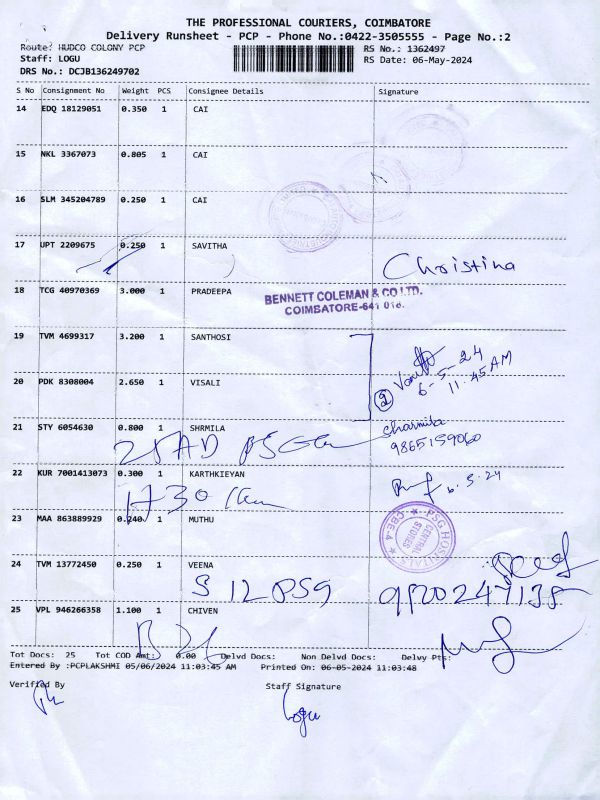 THE PROFESSIONAL COURIERS, COIMBATORE
Delivery Runsheet - PCP - Phone No.:0422-3505555 - Page No.:2
Route: HUDCO COLONY PCP RS No.: 1362497
Staff: LOGU RS Date: 06-May-2024
DRS No.: DCJB136249702
S No Consignment No Weight PCS Consignee Details Signature
14 EDQ 18129051 0.350 1 CAI
15 NKL 3367073 0.805 1 CAI
16 SLM 345204789 0.250 1 CAI
17 UPT 2209675 0.250 1 SAVITHA
Christina
18 TCG 40970369 3.000 1 PRADEEPA
BENNETT COLEMAN & CO LTD.
COIMBATORE-641 018.
19 TVM 4699317 3.200 1 SANTHOSI
6-5-24
11.45 AM
20 PDK 8308004 2.650 1 VISALI
2
21 STY 6054630 0.800 1 SHRMILA
Sharmila
9865159060
22 KUR 7001413073 0.300 1 KARTHKIEYAN
6.5.24
1730
23 MAA 863889929 0.240 1 MUTHU
PSG HOSPITALS
CENTRAL STORES
CBE-4
24 TVM 13772450 0.250 1 VEENA
S 12 PSG
25 VPL 946266358 1.100 1 CHIVEN
Tot Docs: 25 Tot COD Amt: 0.00 Delvd Docs: Non Delvd Docs: Delvy Pts:
Entered By :PCPLAKSHMI 05/06/2024 11:03:45 AM Printed On: 06-05-2024 11:03:48
Verified By Staff Signature
Logu